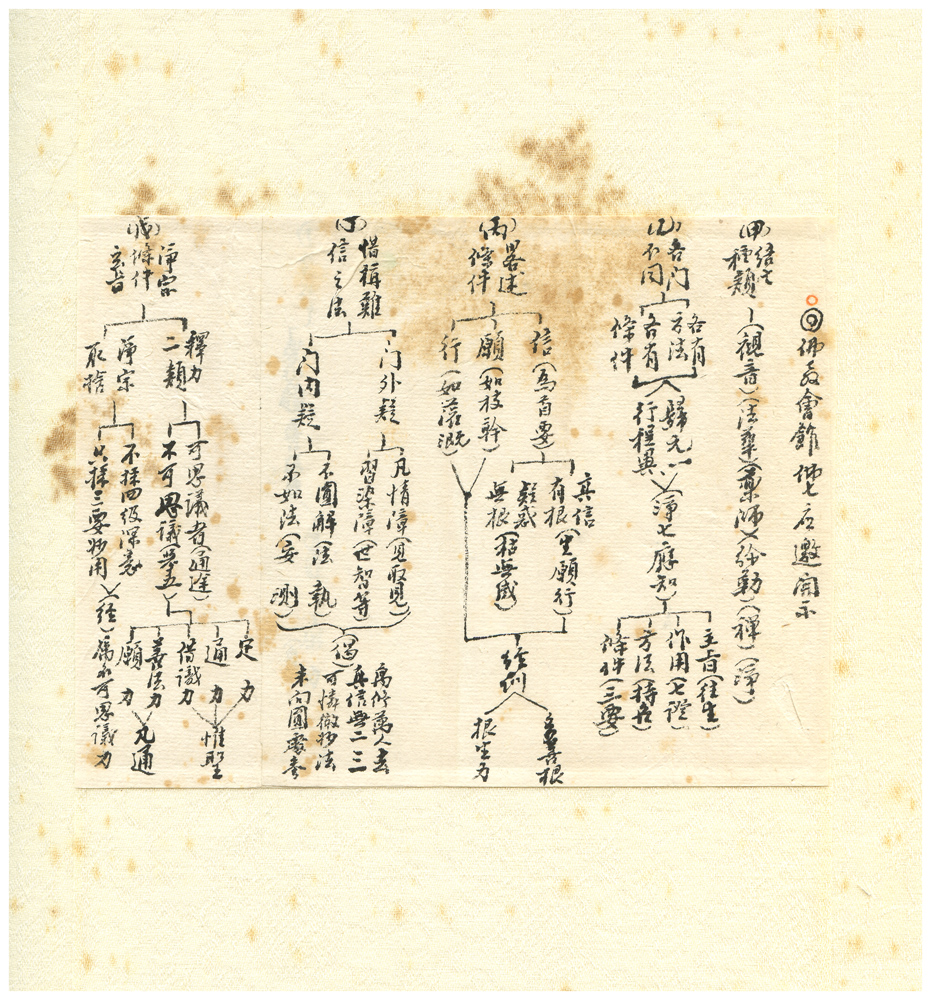 佛教會館佛七應邀開示
(甲)結七種類
(觀音)(法華)(藥師)(彌勒)(禪)(淨)
(乙)各门不同
各有方法
各有條件
歸元一
行程異
淨七應知
主旨(往生)
作用(七證)
方法(持名)
條件(三要)
(丙)畧述條件
信(為首要)
願(如枝幹)
行(如灌溉)
真信有根(生願行)
疑惑無根(枯無成)
經訓
多善根
根生力
(丁)惜稱難信之法
门外疑
门内疑
凡情障(見取見)
習染障(世智等)
不圓解(法執)
不如法(妄測)
(偈)
萬修萬人去
真信無二三
可憐微妙法
未向圓靈參
(戊)淨宗條件玄旨
釋力二類
淨宗取捨
可思議者(通途)
不可思議業五
不採四級深玄
只採三要妙用
定力
通力
借識力
善法力
願力
惟聖
凡通
(經)屬不可思議力